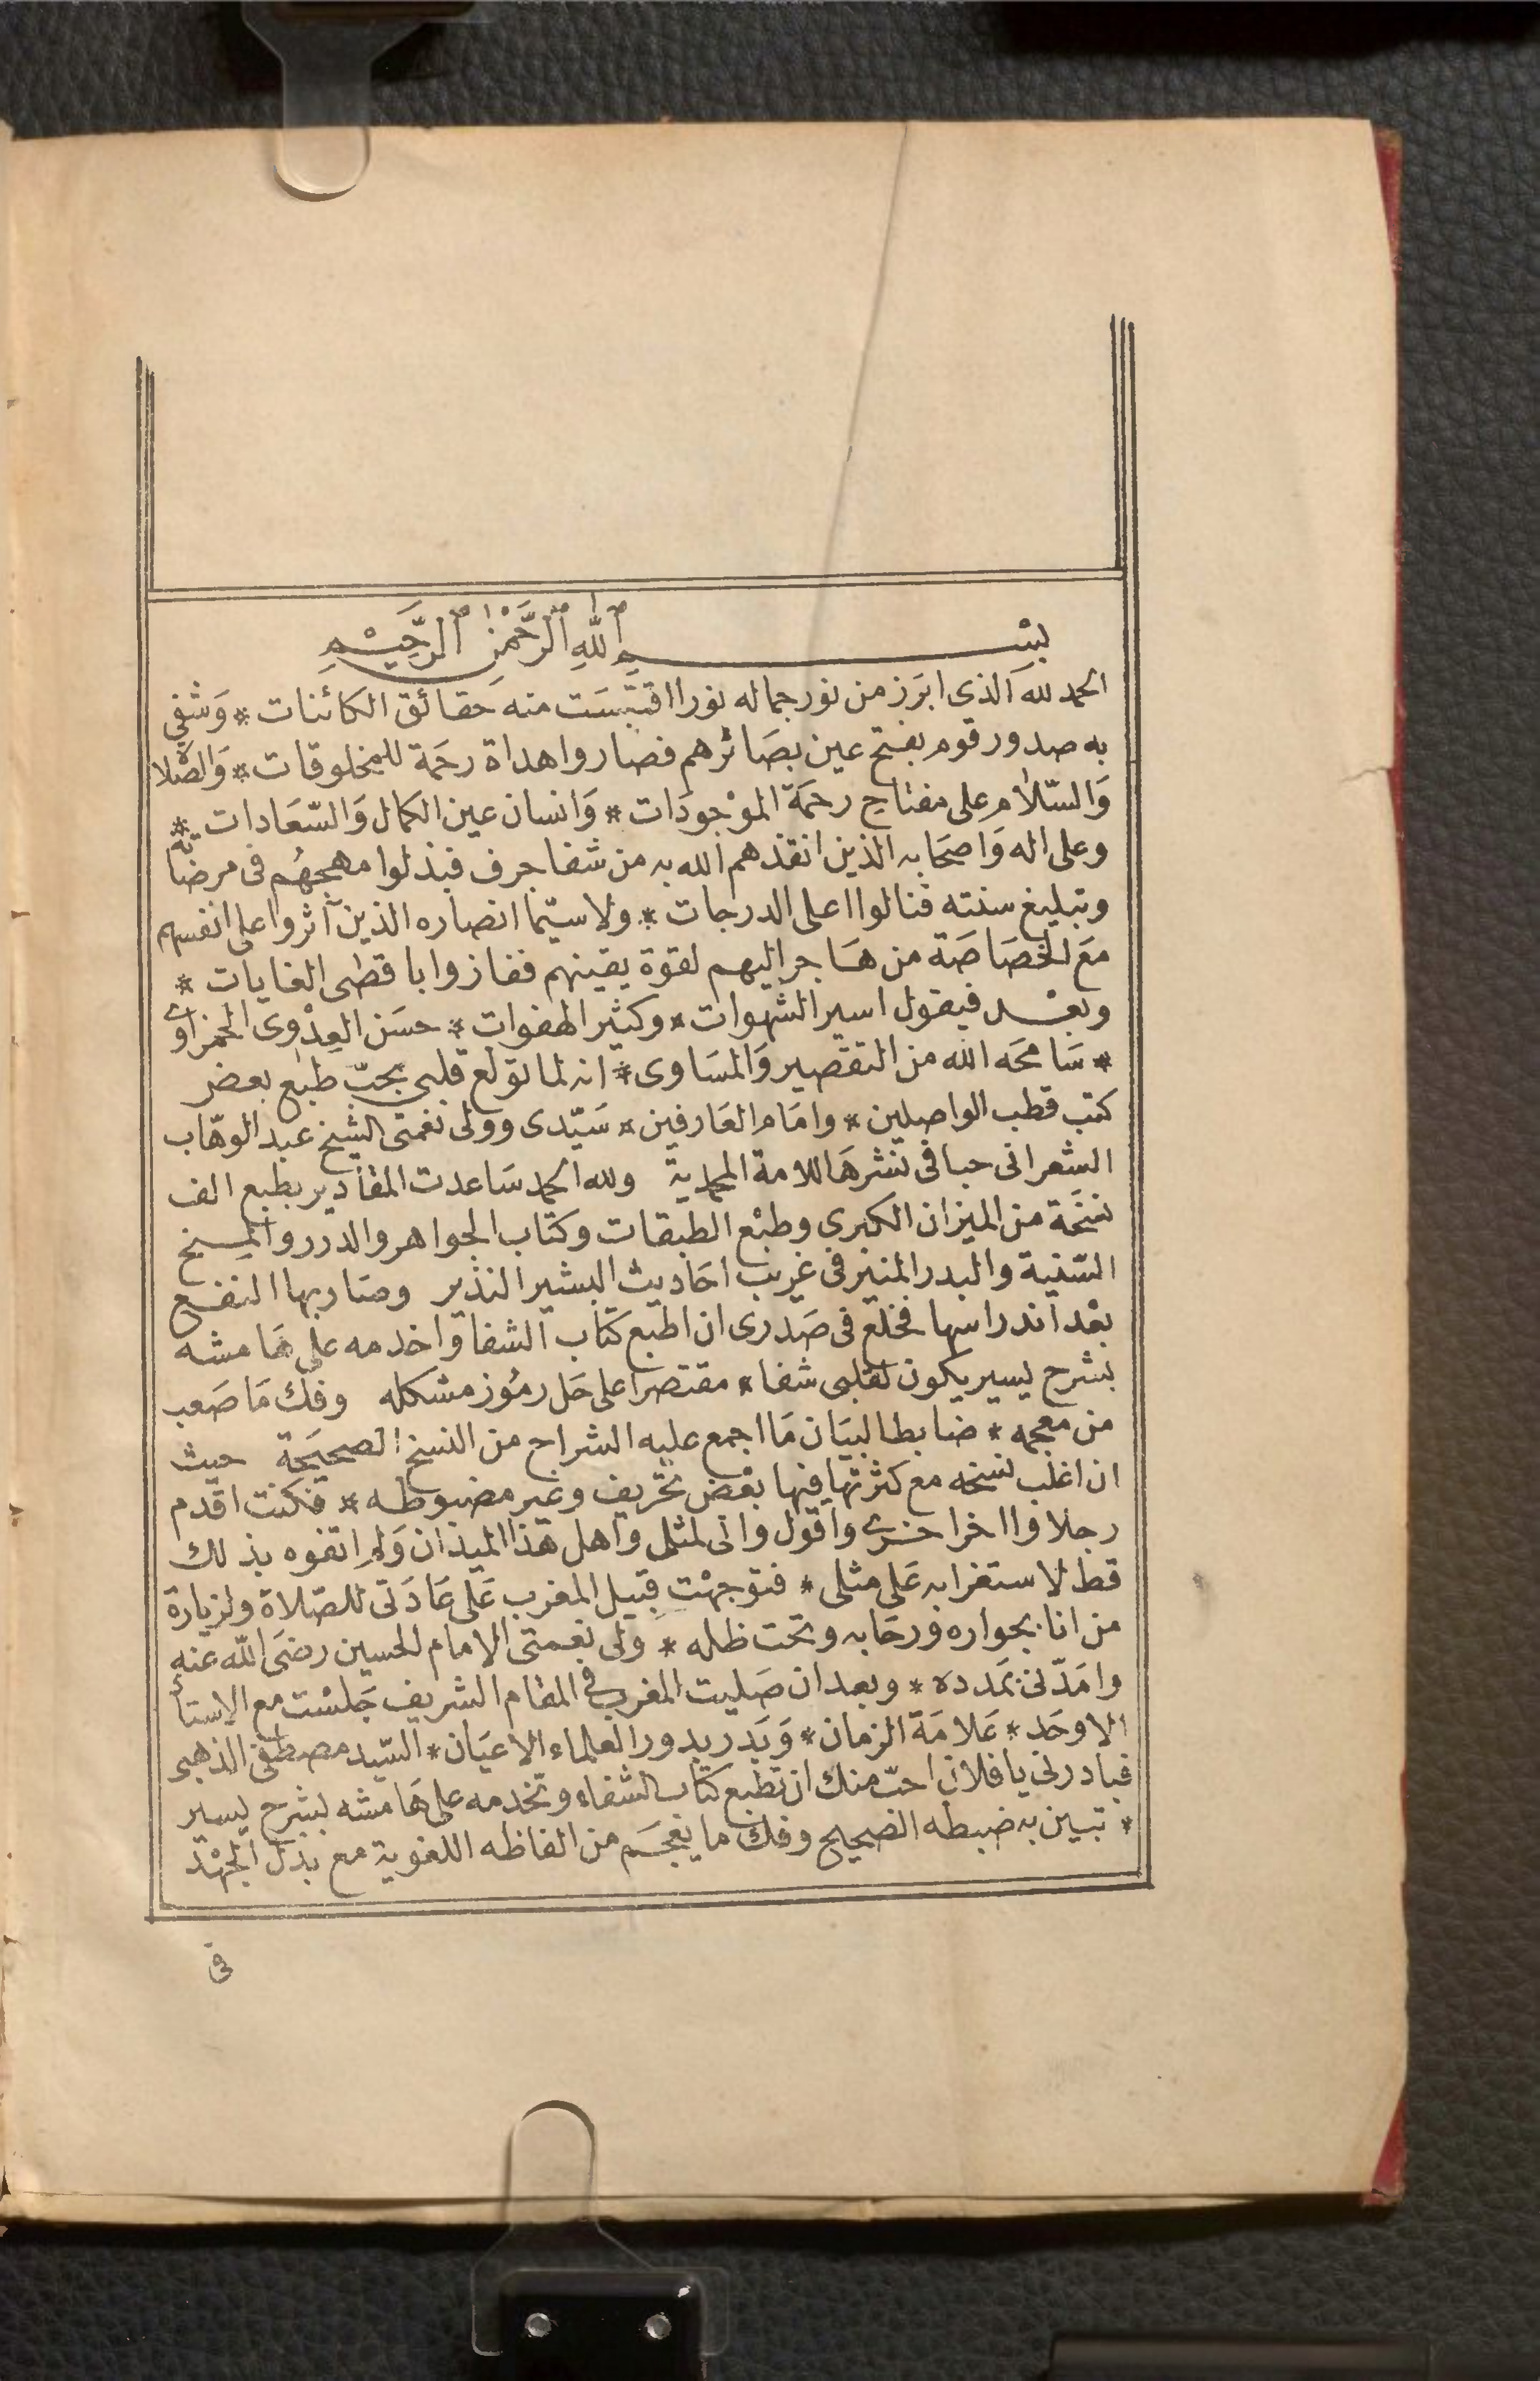 بِسْمِ ٱللّٰهِ ٱلرَّحْمٰنِ ٱلرَّحِيْمِ
الحمد لله الذى ابرَز من نور جماله نورا اقتبسَت منه حَقائق الكائنات * وَشفى
به صدور قوم بفتح عين بصَائرهم فصاروا هداة رحمَة للمخلوقات * وَالصّلاة
وَالسّلام على مفتاح رحمَة الموْجودَات * وَانسان عين الكمال وَالسّعَادات *
وعلى اله وَاصحَابه الذين انقذهم الله به من شفا جرف فبذلوا مهجهُم فى مرضاته
وتبليغ سنته فنالوا اعلى الدرجات * ولا سيّما انصاره الذين آثروا على انفسهم
معَ الخصَاصَة من هَاجر اليهم لقوة يقينهم ففازوا باقصى الغايات *
وبعْد فيقول اسير الشهوات * وكثير الهفوات * حسَن العِدْوى الحمزاوى
* سَامحَه الله من التقصير وَالمسَاوى * انه لما تولع قلبى بحبّ طبع بعض
كتب قطب الواصلين * وامَام العَارفين * سَيّدى وولى نعمتى الشيخ عبد الوهّاب
الشعرانى حبا فى نشرهَا للامة المحمدية ولله الحمد سَاعدت المقادير بطبع الف
نسخَة من الميزان الكبرى وطبْع الطبقات وكتاب الجواهر والدرر والمنح
السّنية والبدر المنير فى غريب احَاديث البشير النذير وصَار بها النفع
بعْد اندراسها فخلع فى صَدرى ان اطبع كتاب الشفا واخدمه على هَامشه
بشرح يسير يكون لقلبى شفا * مقتصرا على حَل رمُوز مشكله وفك مَا صَعب
من معجمه * ضابطا لبيَان مَا اجمع عليه الشراح من النسخ الصحيحَة حيث
ان اغلب نسخه مع كثرتها فيها بعْض تحريف وغير مضبوطه * فكنت اقدم
رجلا واؤخر اخرى واقول وانى لمثلى واهل هذا الميدان وَلم اتفوه بذلك
قط لاستغرابه عَلى مثلى * فتوجهْت قبيل المغرب عَلى عَادَتى للصّلاة ولزيارة
من انا بجواره ورحَابه وتحت ظله * وَلى نعمتى الامام الحسين رضىَ اللّه عنه
وامَدّنى بمَدده * وبعد ان صَليت المغرب فى المقام الشريف جَلسْت مع الاستاذ
الاوحَد * عَلامَة الزمان * وَبَدر بدور العلماء الاعيَان * السّيد مصطفى الذهبى
فبادرنى يا فلان احبّ منك ان تطبع كتاب الشفاء وتخدمه على هَامشه بشرح يسير
* تبين به ضبطه الصحيح وفك ما يعجَم من الفاظه اللغوية مع بذل الجهْد
فى